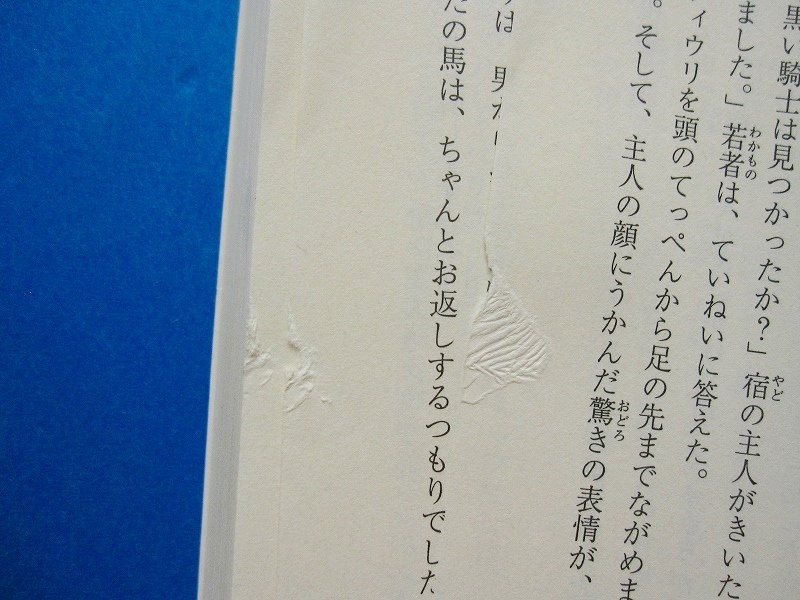 黒い騎士は見つかったか？」宿の主人がきいた
やど
ました。」若者は、ていねいに答えた。
わかもの
ィウリを頭のてっぺんから足の先までながめま
。そして、主人の顔にうかんだ驚きの表情が、
おどろ
は 男
たの馬は、ちゃんとお返しするつもりでした